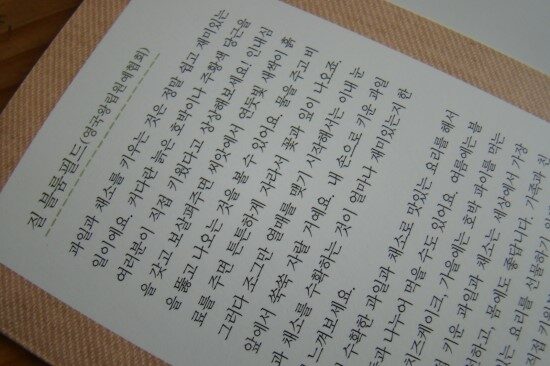 질 블룸필드(영국왕립원예협회)
과일과 채소를 키우는 것은 정말 쉽고 재미있는
일이에요. 커다란 늙은 호박이나 주황색 당근을
여러분이 직접 키웠다고 상상해보세요! 인내심
을 갖고 보살펴주면 씨앗에서 연둣빛 새싹이 흙
을 뚫고 나오는 것을 볼 수 있어요. 물을 주고 비
료를 주면 튼튼하게 자라서 꽃과 잎이 나오죠.
그러다 조그만 열매를 맺기 시작해서는 이내 눈
앞에서 쑥쑥 자랄 거예요. 내 손으로 키운 과일
과 채소를 수확하는 것이 얼마나 재미있는지 한
느껴보세요.
수확한 과일과 채소로 맛있는 요리를 해서
나누어 먹을 수도 있어요. 여름에는 블
치즈케이크, 가을에는 호박 파이를 먹는
키운 과일과 채소는 세상에서 가장
몸에도 좋답니다. 가족과 친
있는 요리를 선물하기
직접 키운